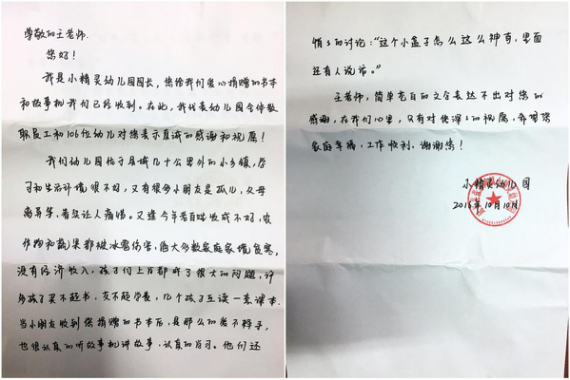 尊敬的王老师:
您好!
我是小精灵幼儿园园长,您给我们爱心捐赠的书本
和故事机我们已经收到。在此,我代表幼儿园全体教
职员工和106位幼儿对您表示真诚的感谢和祝愿!
我们幼儿园位于县城几十公里外的小乡镇,学
习和生活环境很不好,又有很多小朋友是孤儿,父母
离异等,着实让人痛惜。又逢今年老百姓收成不好,农
作物和蔬果都被冰雹伤害,绝大多数家庭家境贫寒,
没有经济收入,孩子们上学都成了很大的问题,许
多孩子买不起书,交不起学费,几个孩子互读一套课本.
当小朋友收到您捐赠的书本后,是那么的爱不释手,
也很认真的听故事机讲故事,认真的学习。他们还
悄悄的讨论:“这个小盒子怎么这么神奇,里面
还有人说话。”
王老师,简单苍白的文字表达不出对您的
感谢,在我们心里,只有对您深深的祝愿,希望您
家庭幸福,工作顺利,谢谢您!
小精灵幼儿园
2016年10月10日